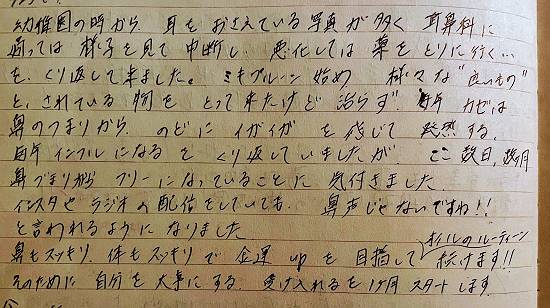 幼稚園の時から 耳をおさえている写真が多く 耳鼻科に
通っては 様子を見て 中断し、悪化しては 薬をとりに行く…
を、くり返して来ました。ミキプルーン始め 様々な"良いもの"
と、されている物を とって来たけど 治らず、毎年 カゼは
鼻のつまりから のどに イガイガ を 感じて 発熱する。
毎年 インフルになる を くり返していましたが、ここ数日、数ヶ月
鼻づまりから フリーになっていることに 気付きました
インスタや ラジオの配信をしていても、鼻声じゃないですね!!
と言われるように なりました
鼻もスッキリ、体もスッキリ で 金運 up を 目指して オイルのルーティーン 続けます!!
そのために 自分を 大事にする、受け入れる を 1ヶ月 スタートします